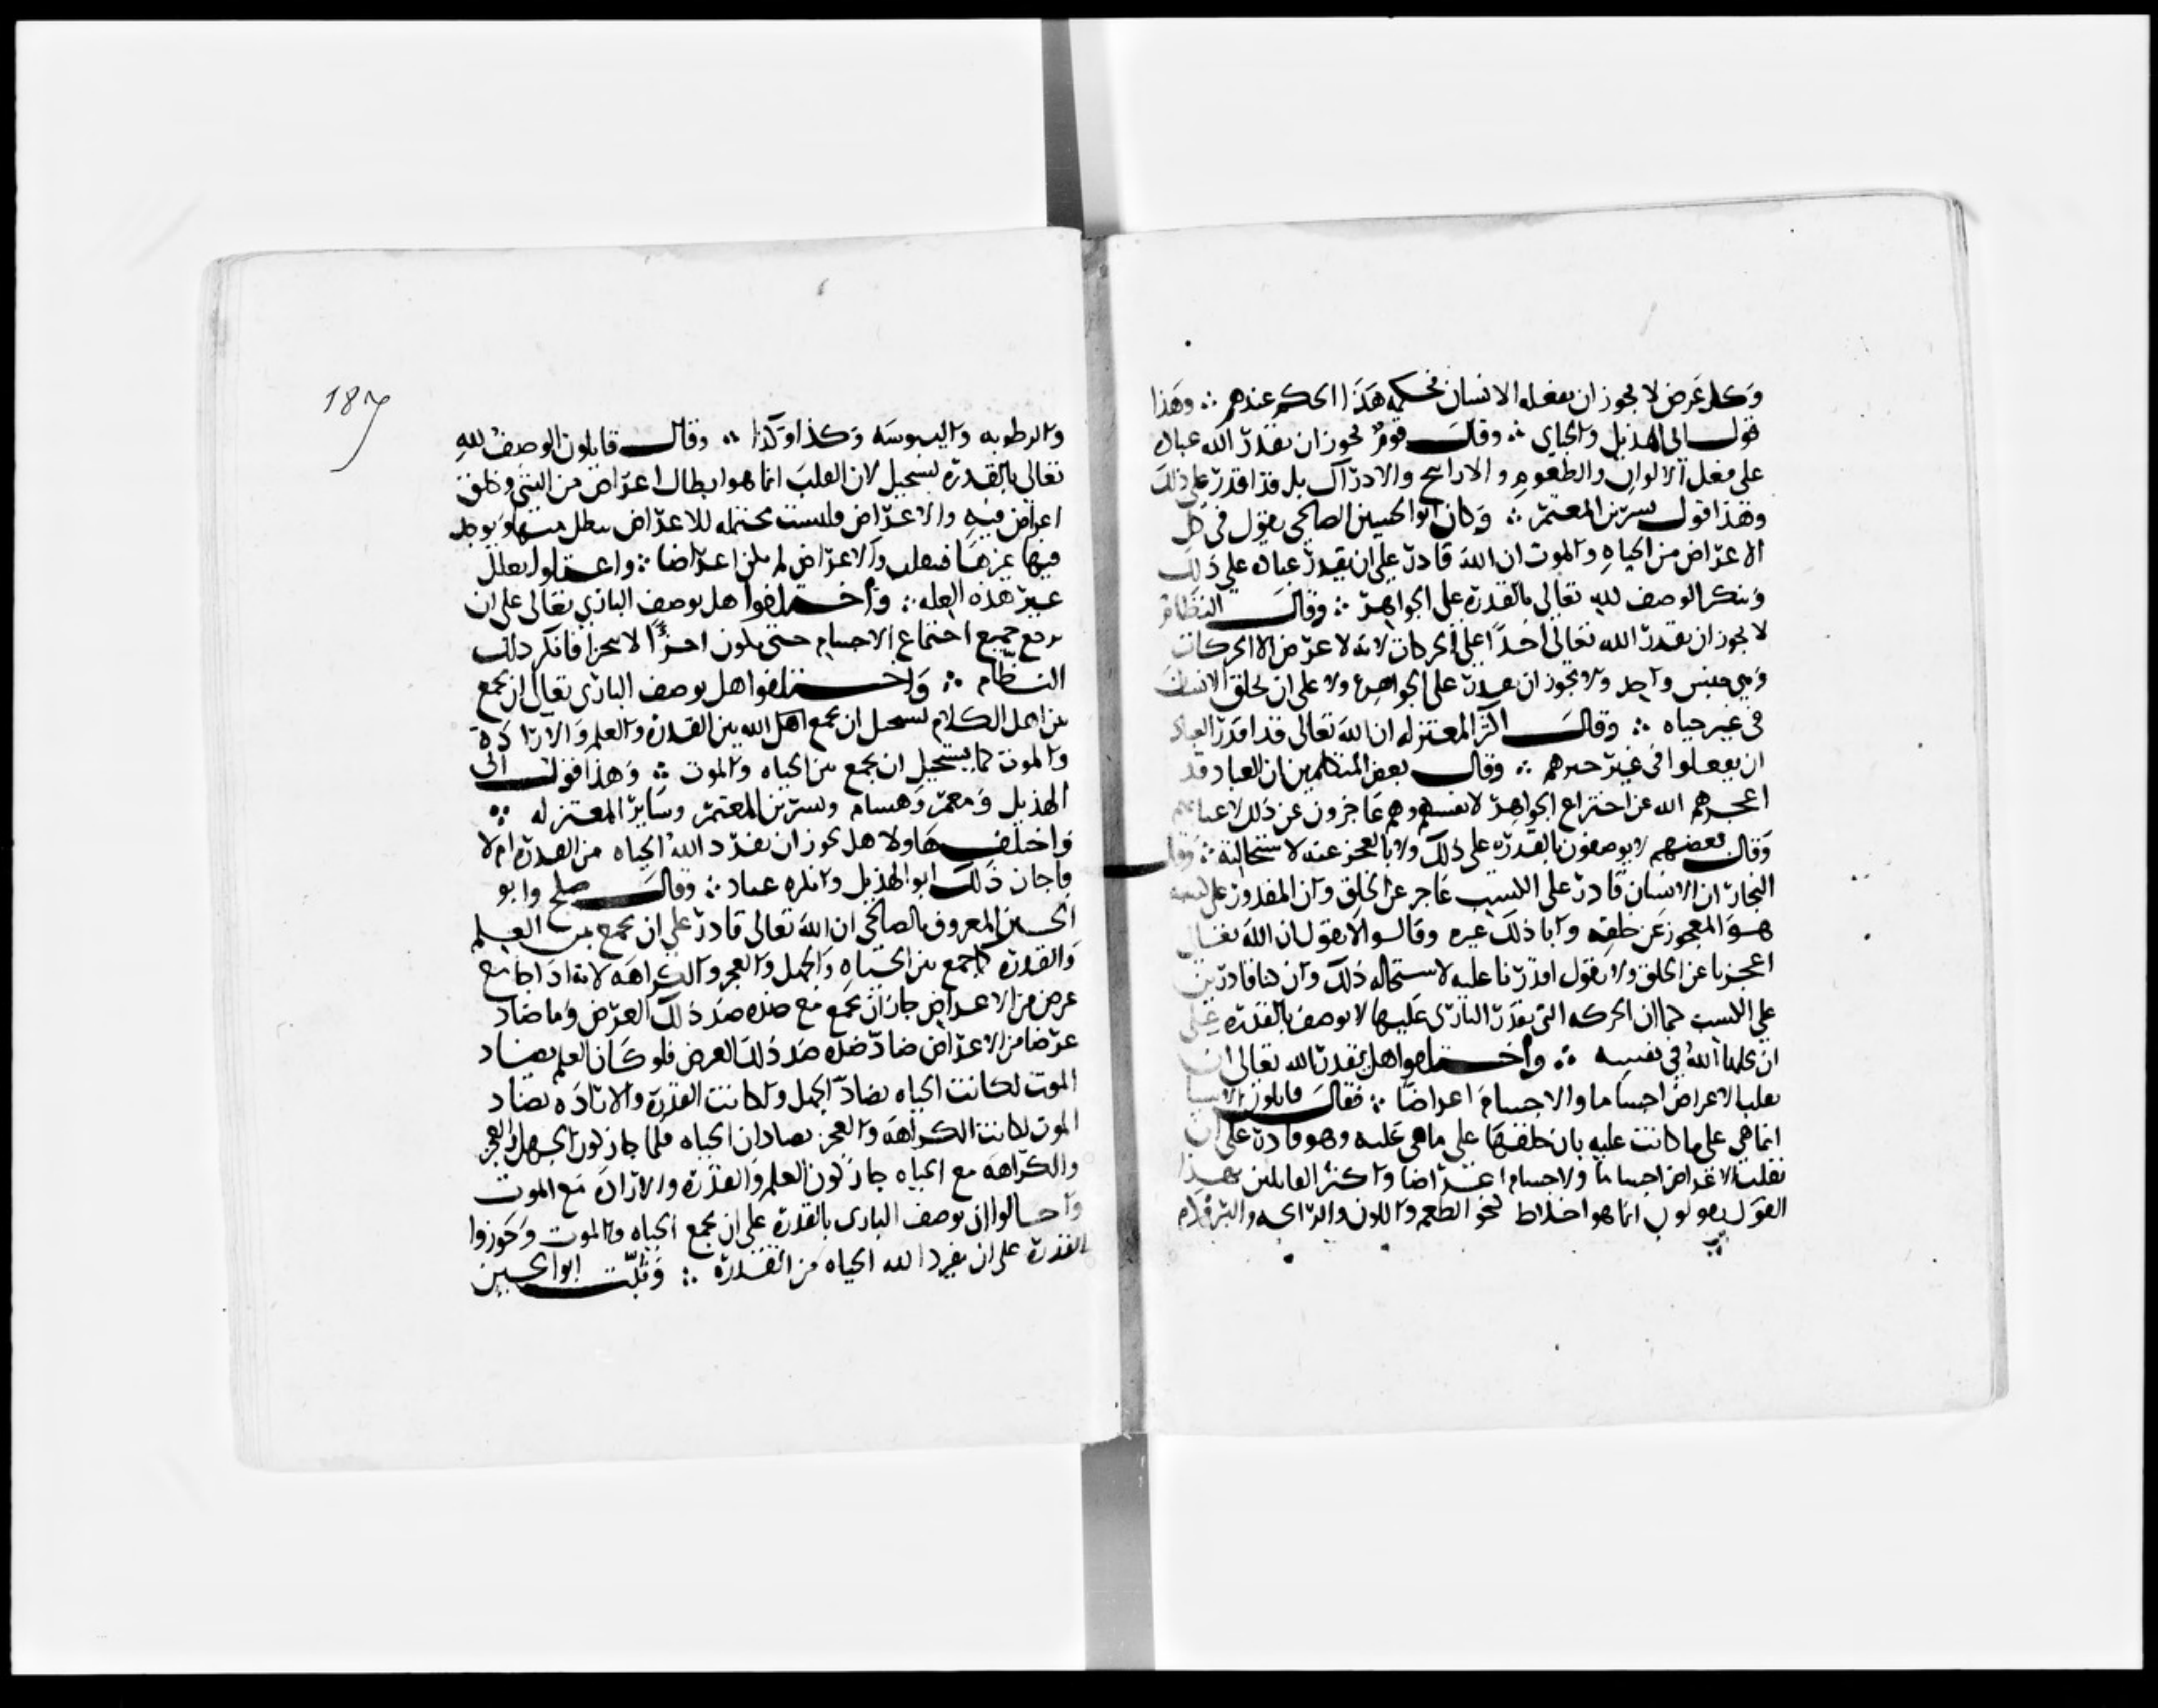 وكل عرض لا يجوز ان يفعله الانسان فحكمه هذا الحكم عندهم ∴ وهذا
قول ابى الهذيل والجباى ∴ وقال قوم يجوز ان يقدر الله عباده
على فعل الالوان والطعوم والاراييح والادراك بل قد اقدر على ذلك
وهذا قول بشر بن المعتمر ∴ وكان ابو الحسين الصالحى يقول فى كل
الاعراض من الحياه والموت ان الله قادر على ان يقدر عباده على ذلك
وينكر الوصف لله تعالى بالقدره على الجواهر ∴ وقال النظام
لا يجوز ان يقدر الله تعالى احدا على الحركات لانه لا عرض الا الحركات
وهى جنس واحد ولا يجوز ان يقدر على الجواهر ولا على ان يخلق الانسان
فى غيره حياه ∴ وقال اكثر المعتزله ان الله تعالى قد اقدر العباد
ان يفعلوا فى غير حيزهم ∴ وقال بعض المتكلمين ان العباد قد
اعجزهم الله عن اختراع الجواهر لانفسهم وهم عاجزون عن ذلك
وقال بعضهم لا يوصفون بالقدره على ذلك ولا بالعجز عنه لاستحالته ∴ وقال
النجار ان الانسان قادر على الكسب عاجز عن الخلق وان المقدور على كسبه
هو المعجوز عن خلقه وابا ذلك غيره وقالوا لا نقول ان الله تعالى
اعجزنا عن الخلق ولا نقول اقدرنا عليه لاستحاله ذلك وان كنا قادرين
على الكسب كما ان الحركه التى يقدر البارى عليها لا يوصف بالقدره على
ان يحلها الله فى نفسه ∴ واختلفوا هل يقدر الله تعالى ان
يقلب الاعراض اجساما والاجسام اعراضا ∴ فقال قايلون الاشيا
انما هى على ما كانت عليه بان خلقها على ما هى عليه وهو قادر على ان
يقلب الاعراض اجساما والاجسام اعراضا واكثر القايلين بهذا
القول يقولون انما هو اخلاط نحو الطعم واللون والرايحه والبروده
187
والرطوبه واليبوسه وكذا وكذا ∴ وقال قايلون الوصف لله
تعالى بالقدره يستحيل لان القلب انما هو ابطال اعراض من الشى وخلق
اعراض فيه والاعراض فليست محتمله للاعراض يبطل منها ويوجد
فيها غيرها فيقلب والاعراض لم يكن اعراضا ∴ واعتلوا بعلل
غير هذه العله ∴ واختلفوا هل يوصف البارى تعالى على ان
يرفع جميع اجتماع الاجسام حتى يكون اجزا لا يتجزا فانكر ذلك
النظام ∴ واختلفوا هل يوصف البارى تعالى ان يجمع
من اهل الكلام يستحيل ان يجمع اهل الله بين القدره والعلم والاراده
والموت كما يستحيل ان يجمع بين الحياه والموت ∴ وهذا قول ابى
الهذيل ومعمر وهشام وبشر بن المعتمر وساير المعتزله ∴
واختلف هاولا هل يجوز ان يفرد الله الحياه من القدره ام لا
فاجاز ذلك ابو الهذيل وانكره عباد ∴ وقال صلح وابو
الحسين المعروف بالصالحى ان الله تعالى قادر على ان يجمع بين العلم
والقدره كما جمع بين الحياه والجهل والعجز والكراهه لانه اذا جامع
عرض من الاعراض جاز ان يجمع مع ضده ضد ذلك العرض وما ضاد
عرضا من الاعراض ضاد ضده ضد ذلك العرض فلو كان العلم يضاد
الموت لكانت الحياه تضاد الجهل ولو كانت القدره والاراده تضاد
الموت لكانت الكراهه والعجز يضادان الحياه فلما جاز كون الجهل والعجز
والكراهه مع الحياه جاز كون العلم والقدره والاراده مع الموت
واحالوا ان يوصف البارى بالقدره على ان يجمع الحياه والموت وجوزوا
القدره على ان يفرد الله الحياه من القدره ∴ وثبت ابو الحسين